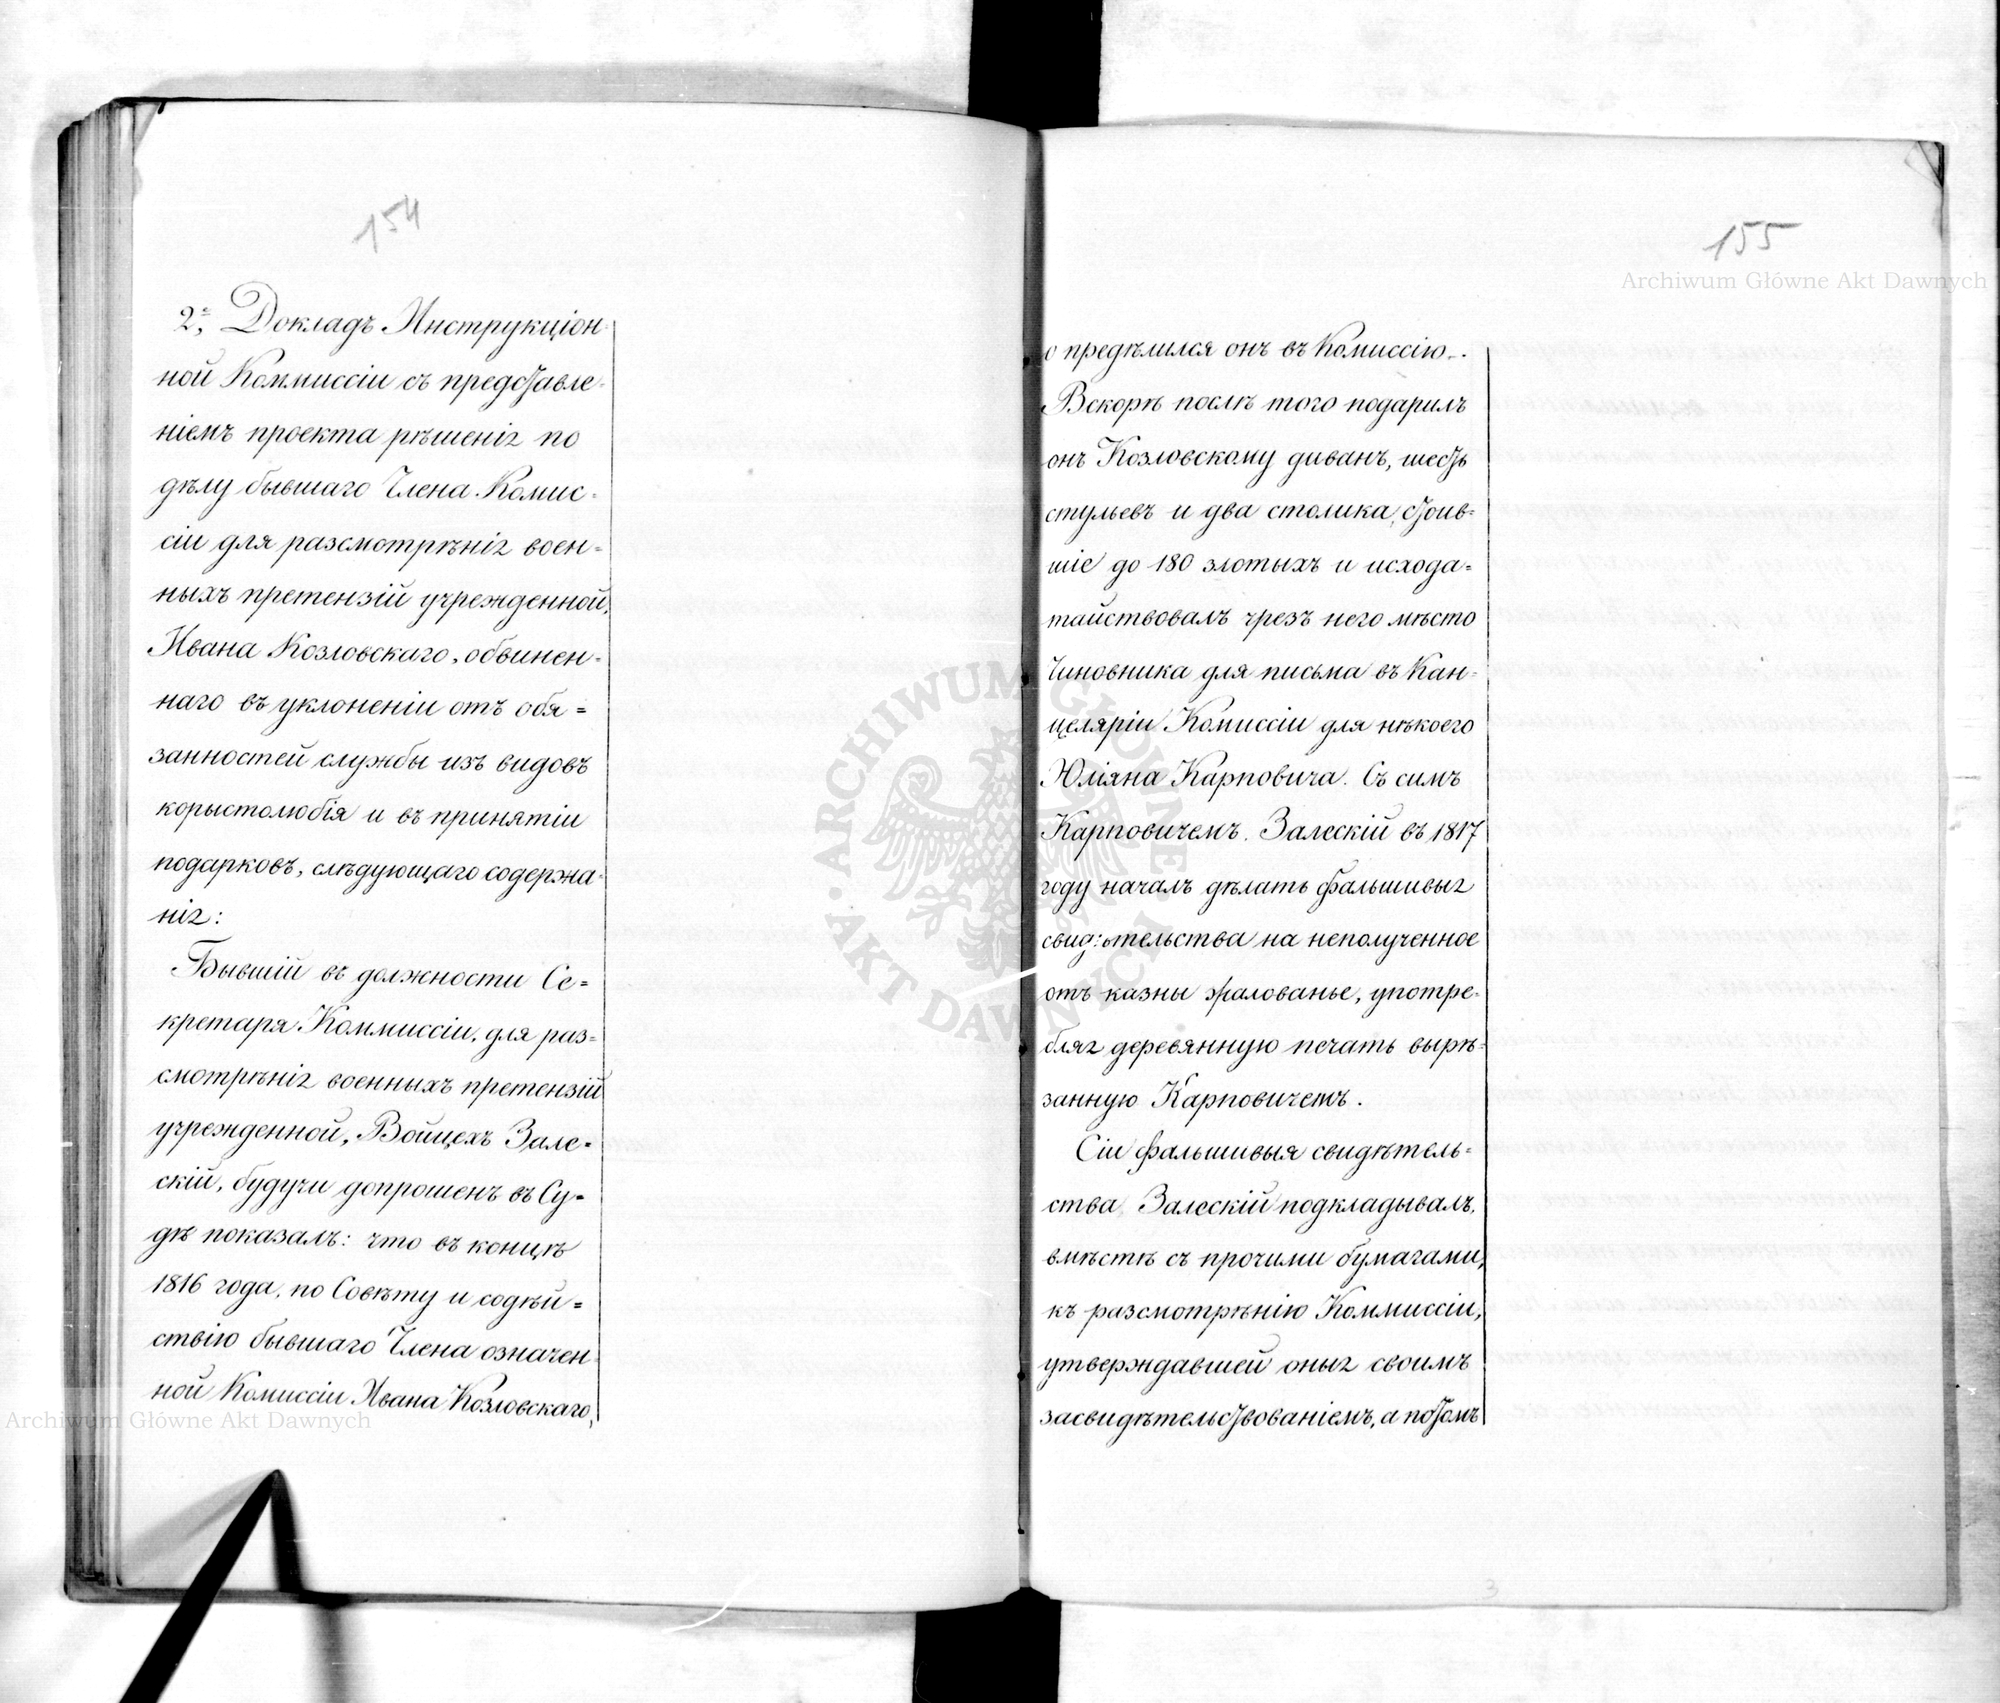 154
2е, Докладъ Инструкціон
ной Коммиссіи съ представле-
ніемъ проекта рѣшенія по
дѣлу бывшаго Члена Комис-
сіи для разсмотрѣнія воен-
ныхъ претензій учрежденной,
Ивана Козловскаго, обвинен-
наго въ уклоненіи отъ обя=
занностей службы изъ видовъ
корыстолюбія и въ принятіи
подарковъ, слѣдующаго содержа-
нія:
Бывшій въ должности Се=
кретаря Коммиссіи, для раз=
смотрѣнія военныхъ претензій
учрежденной, Войцехъ Зале=
скій, будучи допрошенъ въ Су=
дѣ показалъ: что въ концѣ
1816 года, по Совѣту и содѣй=
ствію бывшаго Члена означен
ной Комиссіи Ивана Козловскаго,
155
опредѣлился онъ въ Комиссію.
Вскорѣ послѣ того подарилъ
онъ Козловскому диванъ, шесть
стульевъ и два столика, стоив=
шіе до 180 злотыхъ и исхода=
тайствовалъ чрезъ него мѣсто
Чиновника для письма въ Кан-
целяріи Комиссіи для нѣкоего
Юліяна Карповича. Съ симъ
Карповичемъ. Залескій въ 1817
году началъ дѣлать фальшивыя
свид:ѣтельства на неполученное
отъ казны жалованье, употре-
бляя деревянную печать вырѣ-
занную Карповичемъ.
Сіи фальшивыя свидѣтель=
ства Залескій подкладывалъ,
вмѣстѣ съ прочими бумагами,
къ разсмотрѣнію Коммиссіи,
утверждавшей оныя своимъ
засвидѣтельствованіемъ, а потомъ
3
Archiwum Główne Akt Dawnych
Archiwum Główne Akt Dawnych
ARCHIWUM GŁÓWNE · AKT DAWNYCH ·